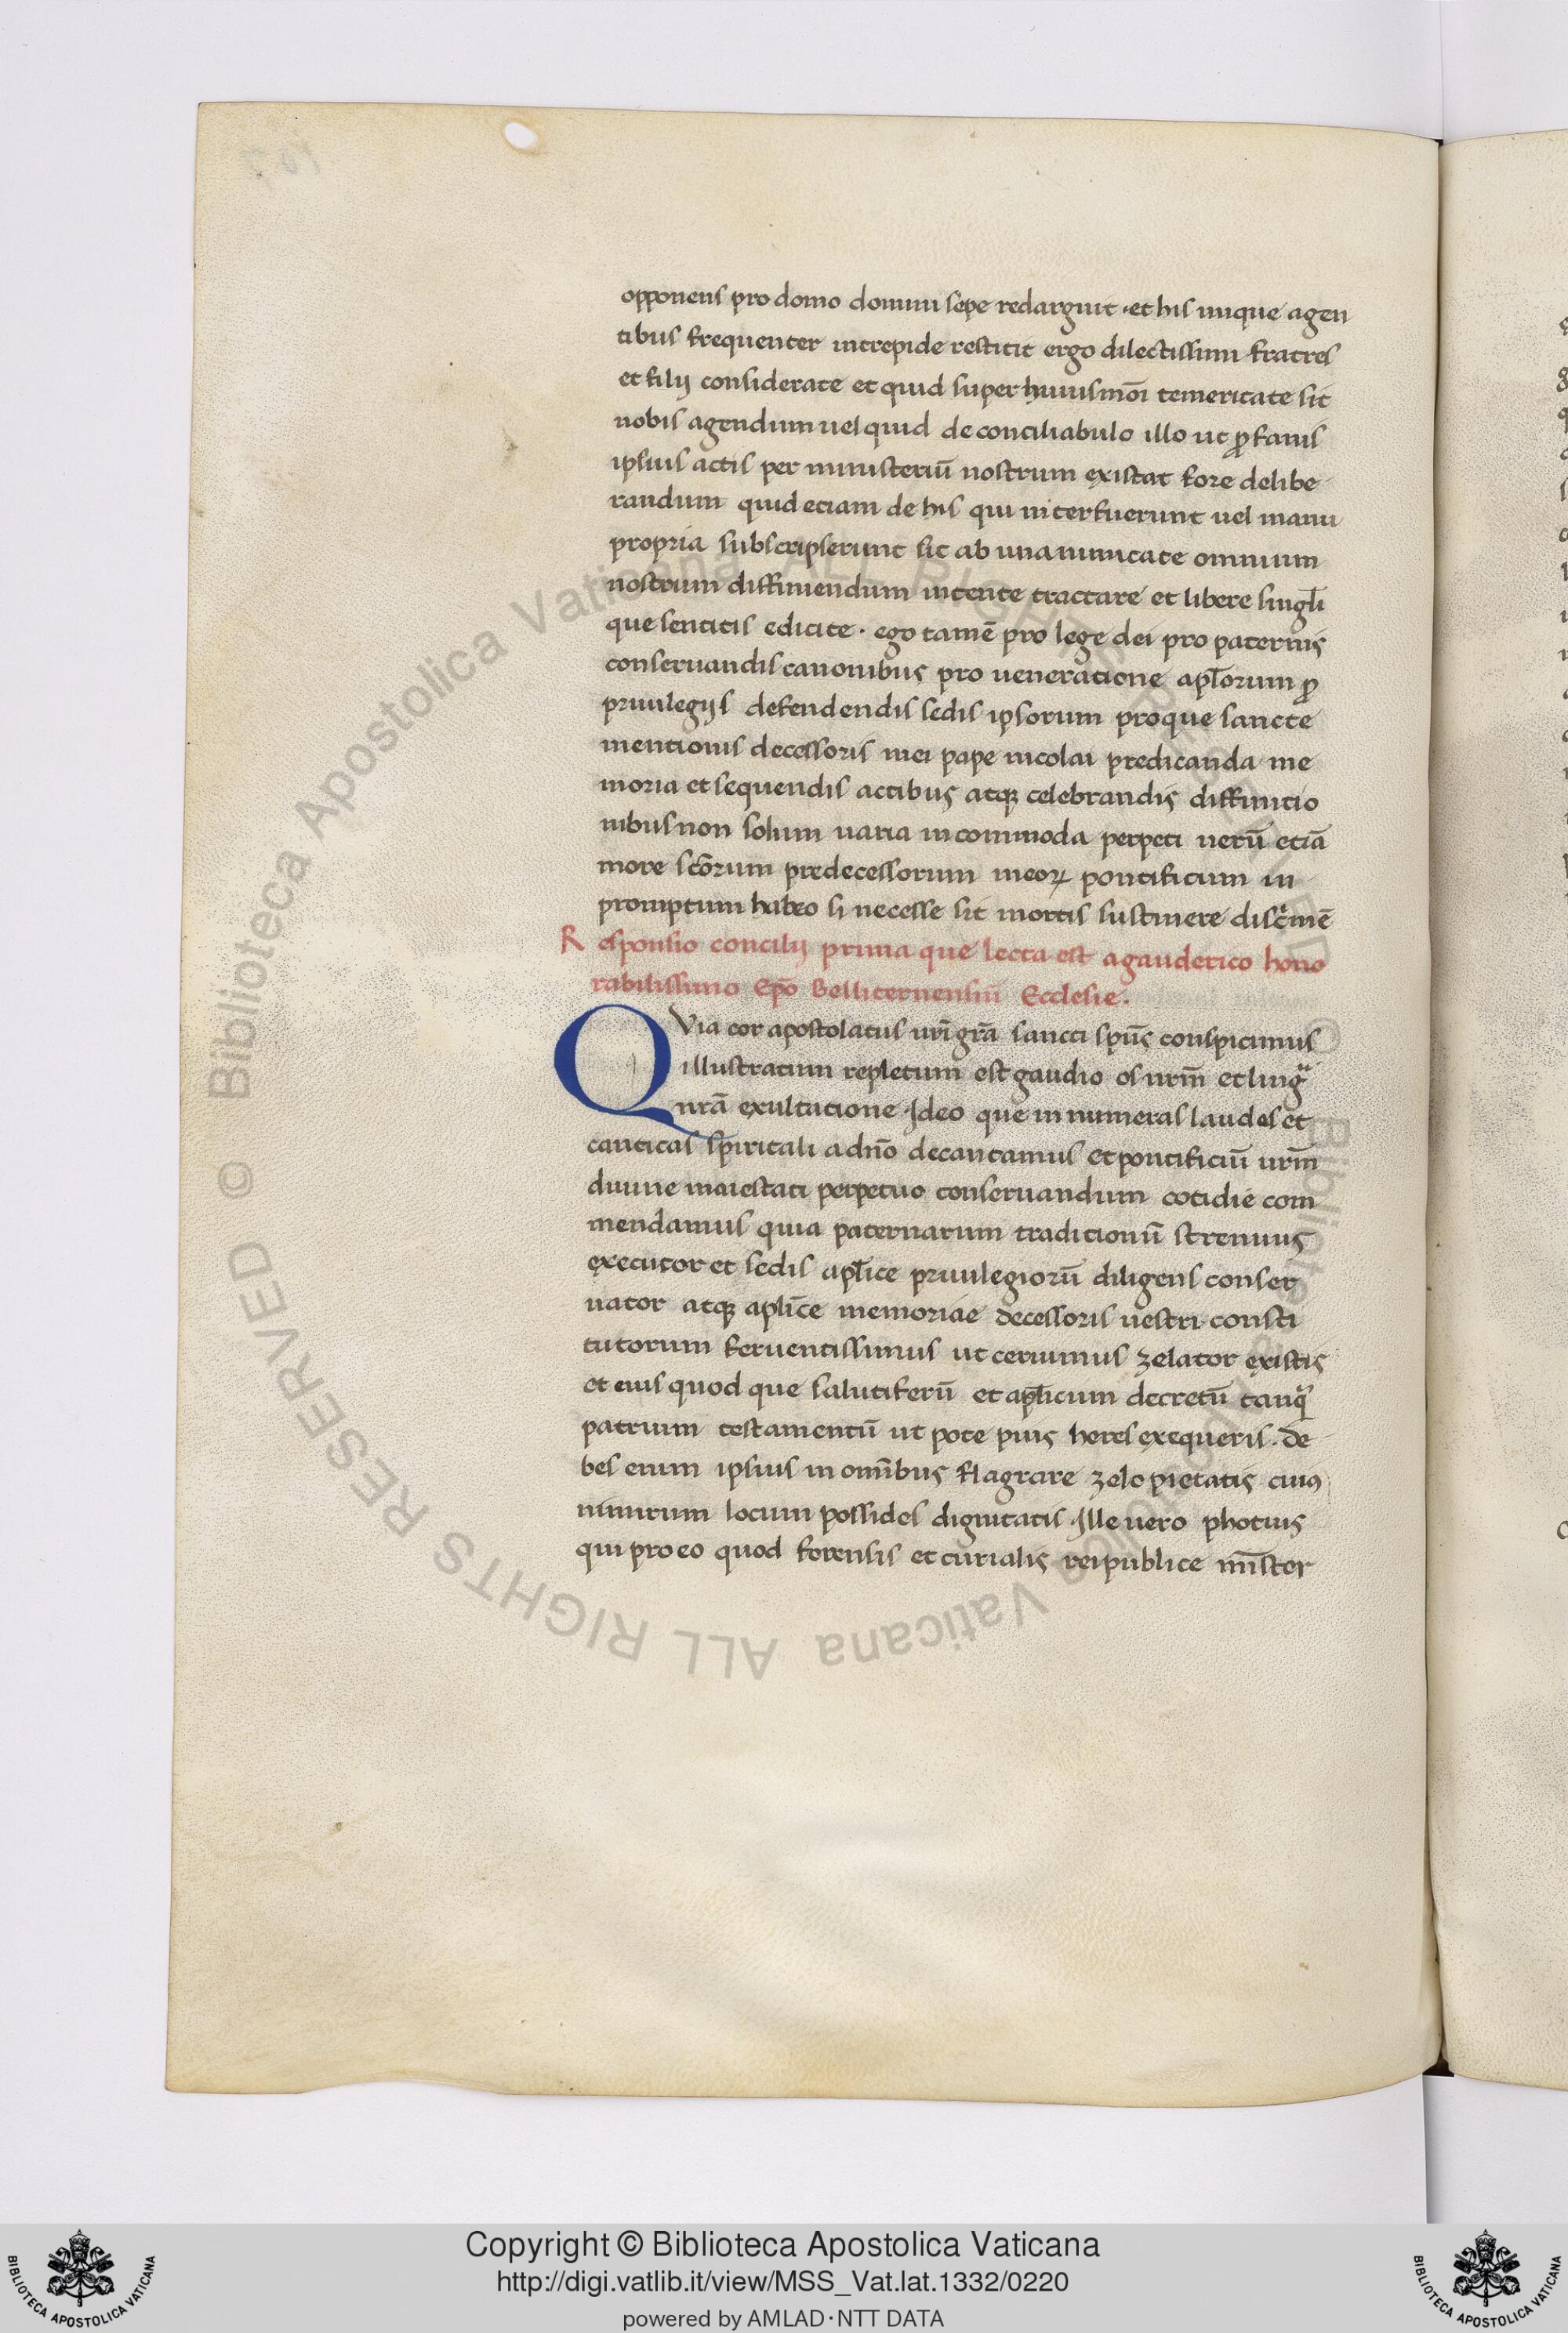 opponens pro domo domini sepe redarguit · et his iniique agen
tibus frequenter intrepide restitit ergo dilectissimi fratres
et filij considerate et quid super huiusmōi temeritate sit
nobis agendum uel quid de conciliabulo illo ut ꝓfanis
ipsius actis per ministeriū nostrum existat fore delibe
randum quid etiam de his qui interfuerunt uel manu
propria subscripserunt sit ab unanimitate omnium
nostrum diffiniendum intente tractare et libere singl̄i
que sentitis edicite · ego tamē pro lege dei pro paternis
conseruandis canonibus pro ueneratione apl̄orum ꝓ
priuilegijs defendendis sedis ipsorum proque sancte
mentionis decessoris mei pape nicolai predicanda me
moria et sequendis actibus atqꝫ celebrandis diffinitio
nibus non solum uaria incommoda perpeti uerū etiā
more scōrum predecessorum meoꝝ pontificum in
promptum habeo si necesse sit mortis sustinere discͥmē
Responsio concilij prima que lecta est a gauderico hono
rabilissimo Ep̄o Belliternensiū Ecclesie.
QVia cor apostolatus ur̄i gr̄a sancti sp̄us conspicimus
illustratum repletum est gaudio os nr̄m et lingᷓ
nr̄a exultatione · Ideo que innumeras laudes et
canticas spiritali a dn̄o decantamus et pontificiū ur̄m
diuine maiestati perpetuo conseruandum cotidie com
mendamus quia paternarum traditionū strenuus
executor et sedis apl̄ice priuilegiorū diligens conser
uator atqꝫ aplīce memoriae decessoris uestri consti
tutorum feruentissimus ut cernimus zelator existis
et eius quod que salutiferū et apl̄icum decretū tanqͣ
patrium testamentū ut pote pius heres exequeris · de
bes enim ipsius in omībus flagrare zelo pietatis cuiꝰ
nimirum locum possides dignitatis · Ille uero photius
qui pro eo quod forensis et curialis rei publice mīster
Copyright © Biblioteca Apostolica Vaticana
http://digi.vatlib.it/view/MSS_Vat.lat.1332/0220
powered by AMLAD·NTT DATA